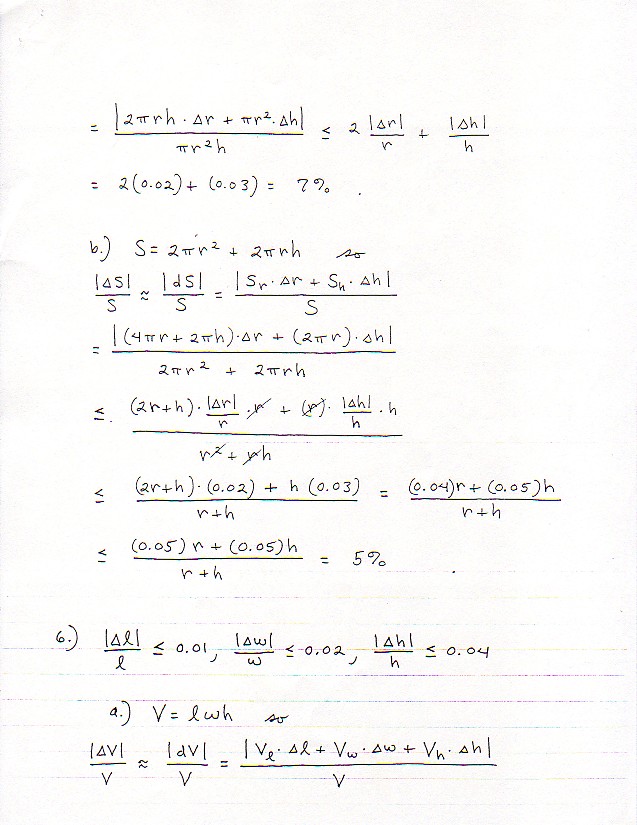 = |2πrh · Δr + πr² · Δh| / πr²h ≤ 2 |Δr|/r + |Δh|/h
= 2(0.02) + (0.03) = 7% .
b.) S = 2πr² + 2πrh so
|ΔS|/S ≈ |dS|/S = |Sr · Δr + Sh · Δh| / S
= |(4πr + 2πh) · Δr + (2πr) · Δh| / 2πr² + 2πrh
≤ (2r+h) · |Δr|/r · r + (r) · |Δh|/h · h / r² + rh
≤ (2r+h) · (0.02) + h (0.03) / r+h = (0.04)r + (0.05)h / r+h
≤ (0.05) r + (0.05)h / r+h = 5% .
6.) |Δl|/l ≤ 0.01, |Δw|/w ≤ 0.02, |Δh|/h ≤ 0.04
a.) V = lwh so
|ΔV|/V ≈ |dV|/V = |Vl · Δl + Vw · Δw + Vh · Δh| / V